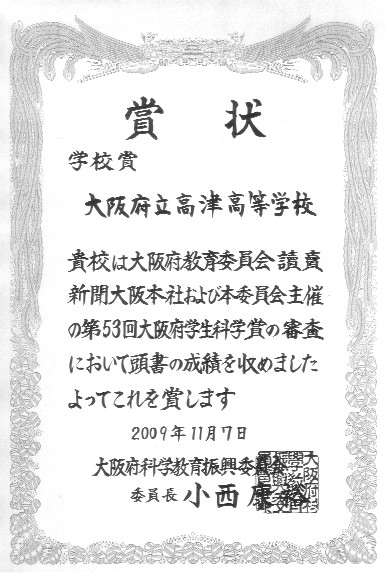 賞状
学校賞
大阪府立高津高等学校
貴校は大阪府教育委員会読売
新聞大阪本社および本委員会主催
の第53回大阪府学生科学賞の審査
において頭書の成績を収めました
よってこれを賞します
2009年11月7日
大阪府科学教育振興委員会
委員長 小西康裕